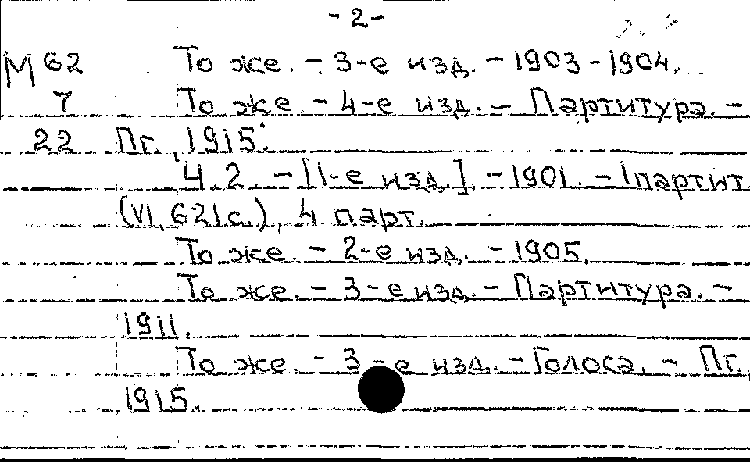 - 2 -
М 62 То же. - 3-е изд. - 1903-1904.
7 То же - 4-е изд. - Партитура. -
22 Пг., 1915.
Ч. 2. - [1-е изд.]. - 1901. - 1 партит.
(VI, 621 с.), 4 парт.
То же - 2-е изд. - 1905.
То же. - 3-е изд. - Партитура. -
1911.
То же. - 3-е изд. - Голоса. - Пг.,
1915.